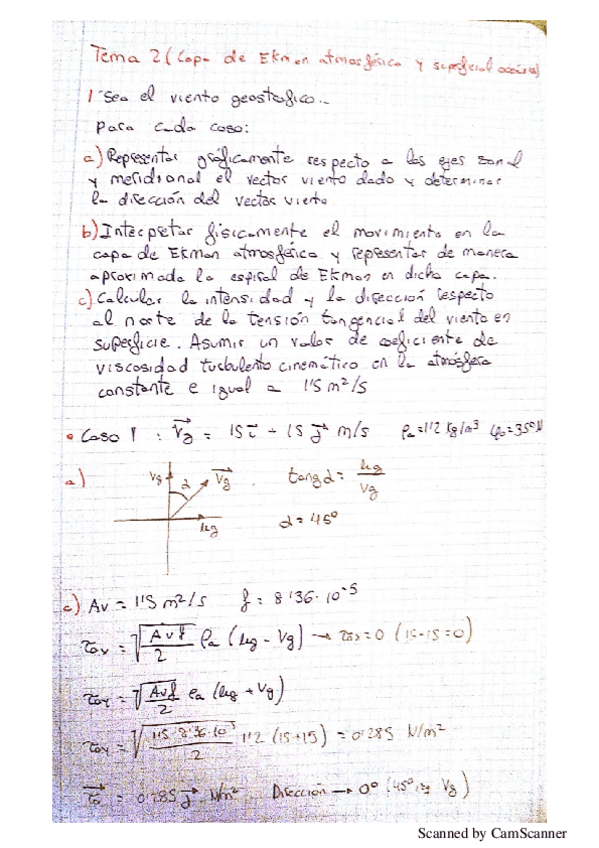 Tema 2 (Capa de Ekman atmosférica y superficial oceánica)
1 Sea el viento geostrófico...
Para cada caso:
a) Representar gráficamente respecto a los ejes zonal
y meridional el vector viento dado y determinar
la dirección del vector viento
b) Interpretar físicamente el movimiento en la
capa de Ekman atmosférica y representar de manera
aproximada la espiral de Ekman en dicha capa.
c) Calcular la intensidad y la dirección respecto
al norte de la tensión tangencial del viento en
superficie. Asumir un valor de coeficiente de
viscosidad turbulento cinemático en la atmósfera
constante e igual a 1'5 m²/s
• Caso 1 : V⃗g = 15 i⃗ + 15 j⃗ m/s ρa = 1'2 kg/m³ φ0 = 35°N
a) Vg α V⃗g ug tang α = ug/Vg
α = 45°
c) Av = 1'5 m²/s f = 8'36·10⁻⁵
τox = √(Av f/2) ρa (ug - Vg) → τox = 0 (15-15=0)
τoy = √(Av f/2) ρa (ug + Vg)
τoy = √(1'5·8'36·10⁻⁵/2) 1'2 (15+15) = 0'285 N/m²
τ⃗o = 0'285 j⃗ N/m² Dirección → 0° (45° izq Vg)
Scanned by CamScanner